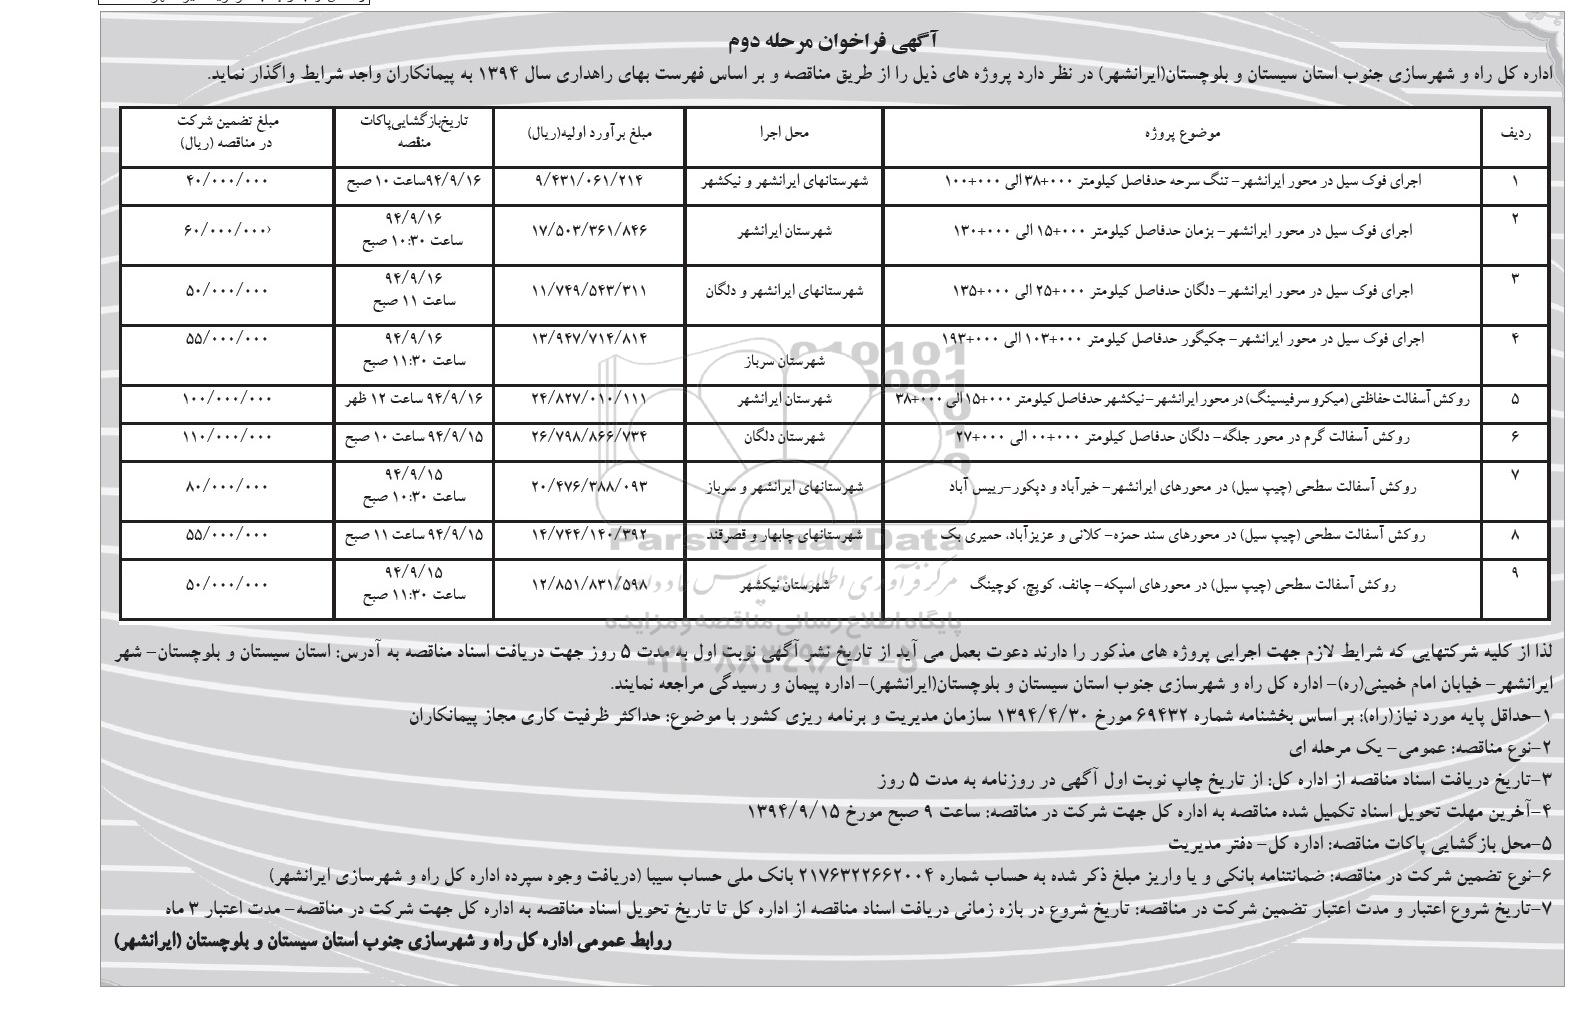 آگهی فراخوان مرحله دوم
اداره کل راه و شهرسازی جنوب استان سیستان و بلوچستان(ایرانشهر) در نظر دارد پروژه های ذیل را از طریق مناقصه و بر اساس فهرست بهای راهداری سال ۱۳۹۴ به پیمانکاران واجد شرایط واگذار نماید.
ردیف موضوع پروژه محل اجرا مبلغ برآورد اولیه(ریال) تاریخ‌بازگشایی‌پاکات منقصه مبلغ تضمین شرکت در مناقصه (ریال)
۱ اجرای فوک سیل در محور ایرانشهر- تنگ سرحه حدفاصل کیلومتر ۰۰۰+۳۸ الی ۰۰۰+۱۰۰ شهرستانهای ایرانشهر و نیکشهر ۹/۴۳۱/۰۶۱/۲۱۴ ۹۴/۹/۱۶ساعت ۱۰ صبح ۴۰/۰۰۰/۰۰۰
۲ اجرای فوک سیل در محور ایرانشهر- بزمان حدفاصل کیلومتر ۰۰۰+۱۵ الی ۰۰۰+۱۳۰ شهرستان ایرانشهر ۱۷/۵۰۳/۳۶۱/۸۴۶ ۹۴/۹/۱۶ ساعت ۱۰:۳۰ صبح ۶۰/۰۰۰/۰۰۰
۳ اجرای فوک سیل در محور ایرانشهر- دلگان حدفاصل کیلومتر ۰۰۰+۲۵ الی ۰۰۰+۱۳۵ شهرستانهای ایرانشهر و دلگان ۱۱/۷۴۹/۵۴۳/۳۱۱ ۹۴/۹/۱۶ ساعت ۱۱ صبح ۵۰/۰۰۰/۰۰۰
۴ اجرای فوک سیل در محور ایرانشهر- جکیگور حدفاصل کیلومتر ۰۰۰+۱۰۳ الی ۰۰۰+۱۹۳ شهرستان سرباز ۱۳/۹۴۷/۷۱۴/۸۱۴ ۹۴/۹/۱۶ ساعت ۱۱:۳۰ صبح ۵۵/۰۰۰/۰۰۰
۵ روکش آسفالت حفاظتی (میکرو سرفیسینگ) در محور ایرانشهر- نیکشهر حدفاصل کیلومتر ۰۰۰+۱۵ الی ۰۰۰+۳۸ شهرستان ایرانشهر ۲۴/۸۲۷/۰۱۰/۱۱۱ ۹۴/۹/۱۶ ساعت ۱۲ ظهر ۱۰۰/۰۰۰/۰۰۰
۶ روکش آسفالت گرم در محور جلگه- دلگان حدفاصل کیلومتر ۰۰۰+۰۰ الی ۰۰۰+۲۷ شهرستان دلگان ۲۶/۷۹۸/۸۶۶/۷۳۴ ۹۴/۹/۱۵ ساعت ۱۰ صبح ۱۱۰/۰۰۰/۰۰۰
۷ روکش آسفالت سطحی (چیپ سیل) در محورهای ایرانشهر- خیرآباد و دپکور-رییس آباد شهرستانهای ایرانشهر و سرباز ۲۰/۴۷۶/۳۸۸/۰۹۳ ۹۴/۹/۱۵ ساعت ۱۰:۳۰ صبح ۸۰/۰۰۰/۰۰۰
۸ روکش آسفالت سطحی (چیپ سیل) در محورهای سند حمزه- کلانی و عزیزآباد، حمیری بک شهرستانهای چابهار و قصرقند ۱۴/۷۴۴/۱۴۰/۳۹۲ ۹۴/۹/۱۵ ساعت ۱۱ صبح ۵۵/۰۰۰/۰۰۰
۹ روکش آسفالت سطحی (چیپ سیل) در محورهای اسپکه- چانف، کوپچ، کوچینگ شهرستان نیکشهر ۱۲/۸۵۱/۸۳۱/۵۹۸ ۹۴/۹/۱۵ ساعت ۱۱:۳۰ صبح ۵۰/۰۰۰/۰۰۰
ParsNamadData
پایگاه اطلاع رسانی مناقصه و مزایده
لذا از کلیه شرکتهایی که شرایط لازم جهت اجرایی پروژه های مذکور را دارند دعوت بعمل می آید از تاریخ نشر آگهی نوبت اول به مدت ۵ روز جهت دریافت اسناد مناقصه به آدرس: استان سیستان و بلوچستان- شهر
ایرانشهر- خیابان امام خمینی(ره)- اداره کل راه و شهرسازی جنوب استان سیستان و بلوچستان(ایرانشهر)- اداره پیمان و رسیدگی مراجعه نمایند.
۱-حداقل پایه مورد نیاز(راه): بر اساس بخشنامه شماره ۶۹۴۳۲ مورخ ۱۳۹۴/۴/۳۰ سازمان مدیریت و برنامه ریزی کشور با موضوع: حداکثر ظرفیت کاری مجاز پیمانکاران
۲-نوع مناقصه: عمومی- یک مرحله ای
۳-تاریخ دریافت اسناد مناقصه از اداره کل: از تاریخ چاپ نوبت اول آگهی در روزنامه به مدت ۵ روز
۴-آخرین مهلت تحویل اسناد تکمیل شده مناقصه به اداره کل جهت شرکت در مناقصه: ساعت ۹ صبح مورخ ۱۳۹۴/۹/۱۵
۵-محل بازگشایی پاکات مناقصه: اداره کل- دفتر مدیریت
۶-نوع تضمین شرکت در مناقصه: ضمانتنامه بانکی و یا واریز مبلغ ذکر شده به حساب شماره ۲۱۷۶۳۲۲۶۶۲۰۰۴ بانک ملی حساب سیبا (دریافت وجوه سپرده اداره کل راه و شهرسازی ایرانشهر)
۷-تاریخ شروع اعتبار و مدت اعتبار تضمین شرکت در مناقصه: تاریخ شروع در بازه زمانی دریافت اسناد مناقصه از اداره کل تا تاریخ تحویل اسناد مناقصه به اداره کل جهت شرکت در مناقصه- مدت اعتبار ۳ ماه
روابط عمومی اداره کل راه و شهرسازی جنوب استان سیستان و بلوچستان (ایرانشهر)